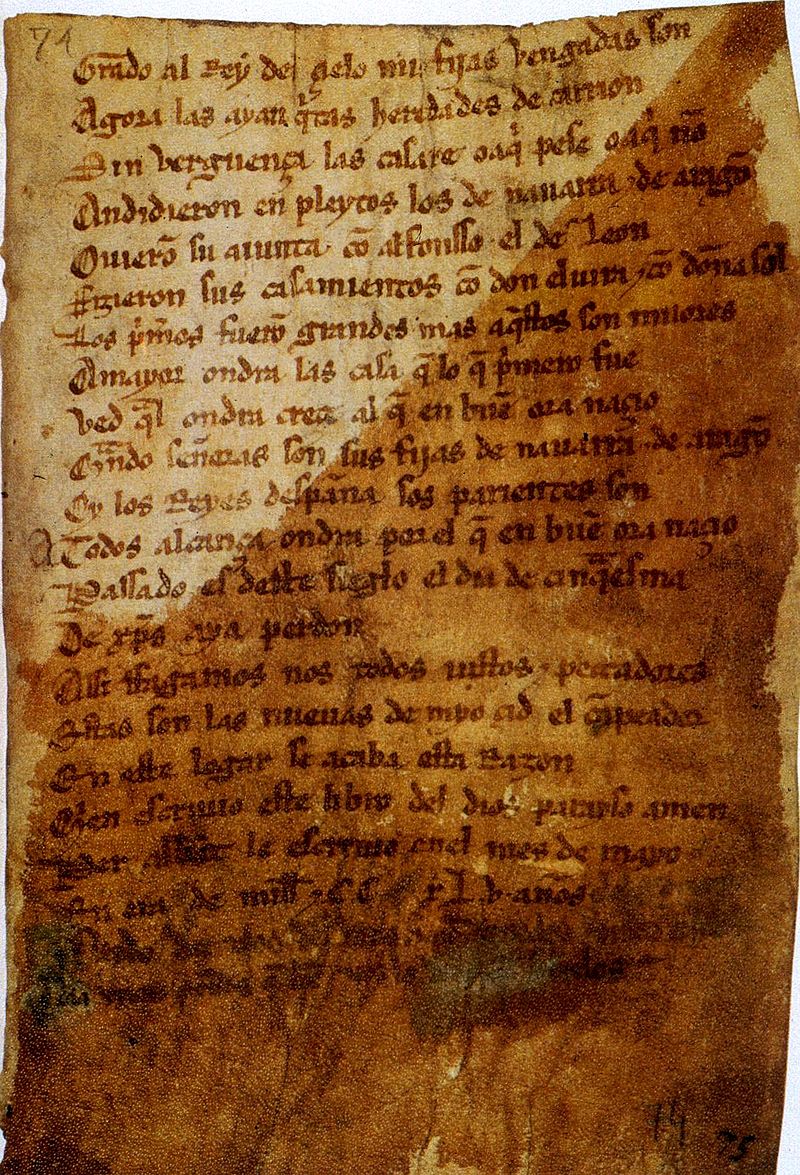 74
Grado al Rey del çielo mis fijas vengadas son
Agora las ayan q̃tas heredades de carrion
Sin verguença las casare o aq̃ pese o aq̃ nõ
Andidieron en pleytos los de nauarra ⁊ de aragõ
Ouierõ su aiunta cõ alfonsso el de leon
Fizieron sus casamientos cõ don eluira ⁊ cõ doña sol
Los p̃m̃os fuerõ grandes mas aq̃stos son miiores
Amayor ondra las casa q̃ lo q̃ p̃mero fue
Ved q̃l ondra creçe al q̃ en buẽ ora naçio
Q̃ndo señoras son sus fijas de nauarra ⁊ de aragõ
Oy los Reyes despaña sos parientes son
A Todos alcança ondra por el q̃ en buẽ ora naçio
Passado es deste sieglo el dia de cinq̃esma
De xp̃s aya perdon
Assi ffagamos nos todos iustos ⁊ peccadores
Estas son las nueuas de myo çid el cãpeador
En este logar se acaba esta Razon
Quien escriuio este libro del dios parayso amen
Per abbat le escriuio en el mes de mayo
En era de mill ⁊ C.C. xL.v. años
75